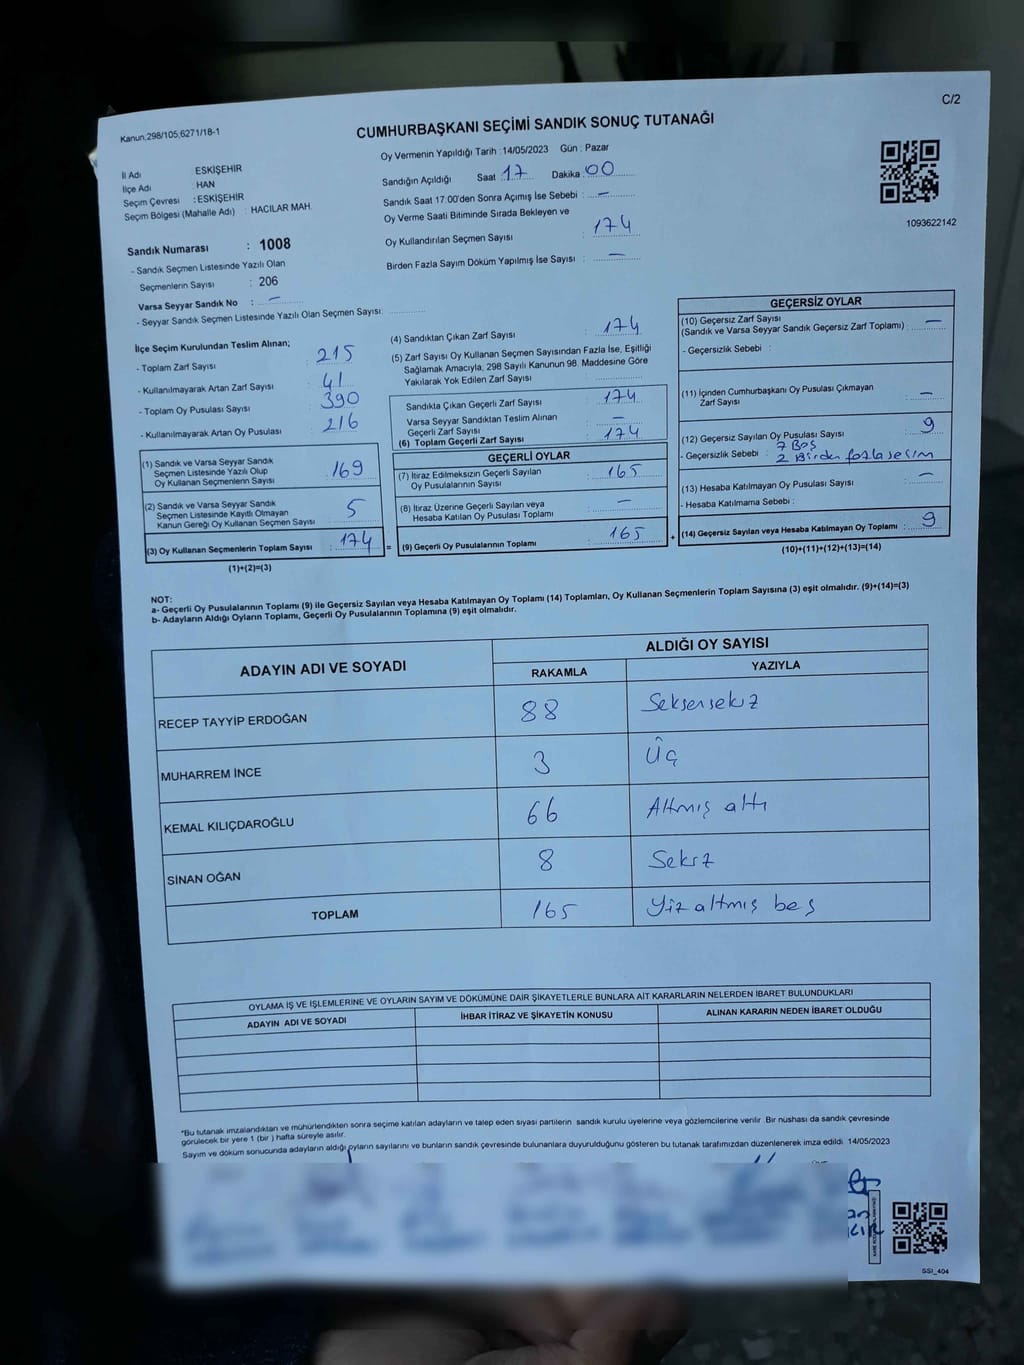 C/2
Kanun:298/105;6271/18-1
CUMHURBAŞKANI SEÇİMİ SANDIK SONUÇ TUTANAĞI
Oy Vermenin Yapıldığı Tarih : 14/05/2023 Gün : Pazar
İl Adı : ESKİŞEHİR
İlçe Adı : HAN
Seçim Çevresi : ESKİŞEHİR
Seçim Bölgesi (Mahalle Adı) : HACILAR MAH.
Sandığın Açıldığı Saat : 17 Dakika : 00
Sandık Saat 17:00'den Sonra Açımış İse Sebebi : —
Oy Verme Saati Bitiminde Sırada Bekleyen ve
Oy Kullandırılan Seçmen Sayısı : 174
Birden Fazla Sayım Döküm Yapılmış İse Sayısı : —
1093622142
Sandık Numarası : 1008
- Sandık Seçmen Listesinde Yazılı Olan
Seçmenlerin Sayısı : 206
Varsa Seyyar Sandık No : —
- Seyyar Sandık Seçmen Listesinde Yazılı Olan Seçmen Sayısı:
İlçe Seçim Kurulundan Teslim Alınan;
- Toplam Zarf Sayısı : 215
- Kullanılmayarak Artan Zarf Sayısı : 41
- Toplam Oy Pusulası Sayısı : 390
- Kullanılmayarak Artan Oy Pusulası : 216
(1) Sandık ve Varsa Seyyar Sandık
Seçmen Listesinde Yazılı Olup
Oy Kullanan Seçmenlerin Sayısı : 169
(2) Sandık ve Varsa Seyyar Sandık
Seçmen Listesinde Kayıtlı Olmayan
Kanun Gereği Oy Kullanan Seçmen Sayısı : 5
(3) Oy Kullanan Seçmenlerin Toplam Sayısı : 174 =
(1)+(2)=(3)
(4) Sandıktan Çıkan Zarf Sayısı : 174
(5) Zarf Sayısı Oy Kullanan Seçmen Sayısından Fazla İse, Eşitliği
Sağlamak Amacıyla, 298 Sayılı Kanunun 98. Maddesine Göre
Yakılarak Yok Edilen Zarf Sayısı :
Sandıkta Çıkan Geçerli Zarf Sayısı : 174
Varsa Seyyar Sandıktan Teslim Alınan
Geçerli Zarf Sayısı : —
(6) Toplam Geçerli Zarf Sayısı : 174
GEÇERLİ OYLAR
(7) İtiraz Edilmeksizin Geçerli Sayılan
Oy Pusulalarının Sayısı : 165
(8) İtiraz Üzerine Geçerli Sayılan veya
Hesaba Katılan Oy Pusulası Toplamı : —
(9) Geçerli Oy Pusulalarının Toplamı : 165 +
GEÇERSİZ OYLAR
(10) Geçersiz Zarf Sayısı
(Sandık ve Varsa Seyyar Sandık Geçersiz Zarf Toplamı) : —
- Geçersizlik Sebebi :
(11) İçinden Cumhurbaşkanı Oy Pusulası Çıkmayan
Zarf Sayısı : —
(12) Geçersiz Sayılan Oy Pusulası Sayısı : 9
- Geçersizlik Sebebi : 7 Boş
2 Birden fazla seçim
(13) Hesaba Katılmayan Oy Pusulası Sayısı : —
- Hesaba Katılmama Sebebi :
(14) Geçersiz Sayılan veya Hesaba Katılmayan Oy Toplamı : 9
(10)+(11)+(12)+(13)=(14)
NOT:
a- Geçerli Oy Pusulalarının Toplamı (9) ile Geçersiz Sayılan veya Hesaba Katılmayan Oy Toplamı (14) Toplamları, Oy Kullanan Seçmenlerin Toplam Sayısına (3) eşit olmalıdır. (9)+(14)=(3)
b- Adayların Aldığı Oyların Toplamı, Geçerli Oy Pusulalarının Toplamına (9) eşit olmalıdır.
ADAYIN ADI VE SOYADI
ALDIĞI OY SAYISI
RAKAMLA YAZIYLA
RECEP TAYYİP ERDOĞAN 88 Seksensekiz
MUHARREM İNCE 3 Üç
KEMAL KILIÇDAROĞLU 66 Altmış altı
SİNAN OĞAN 8 Sekiz
TOPLAM 165 Yüz altmış beş
OYLAMA İŞ VE İŞLEMLERİNE VE OYLARIN SAYIM VE DÖKÜMÜNE DAİR ŞİKAYETLERLE BUNLARA AİT KARARLARIN NELERDEN İBARET BULUNDUKLARI
ADAYIN ADI VE SOYADI İHBAR İTİRAZ VE ŞİKAYETİN KONUSU ALINAN KARARIN NEDEN İBARET OLDUĞU
*Bu tutanak imzalandıktan ve mühürlendikten sonra seçime katılan adayların ve talep eden siyasi partilerin sandık kurulu üyelerine veya gözlemcilerine verilir. Bir nüshası da sandık çevresinde
görülecek bir yere 1 (bir) hafta süreyle asılır.
Sayım ve döküm sonucunda adayların aldığı oyların sayılarını ve bunların sandık çevresinde bulunanlara duyurulduğunu gösteren bu tutanak tarafımızdan düzenlenerek imza edildi. 14/05/2023
SSI_404